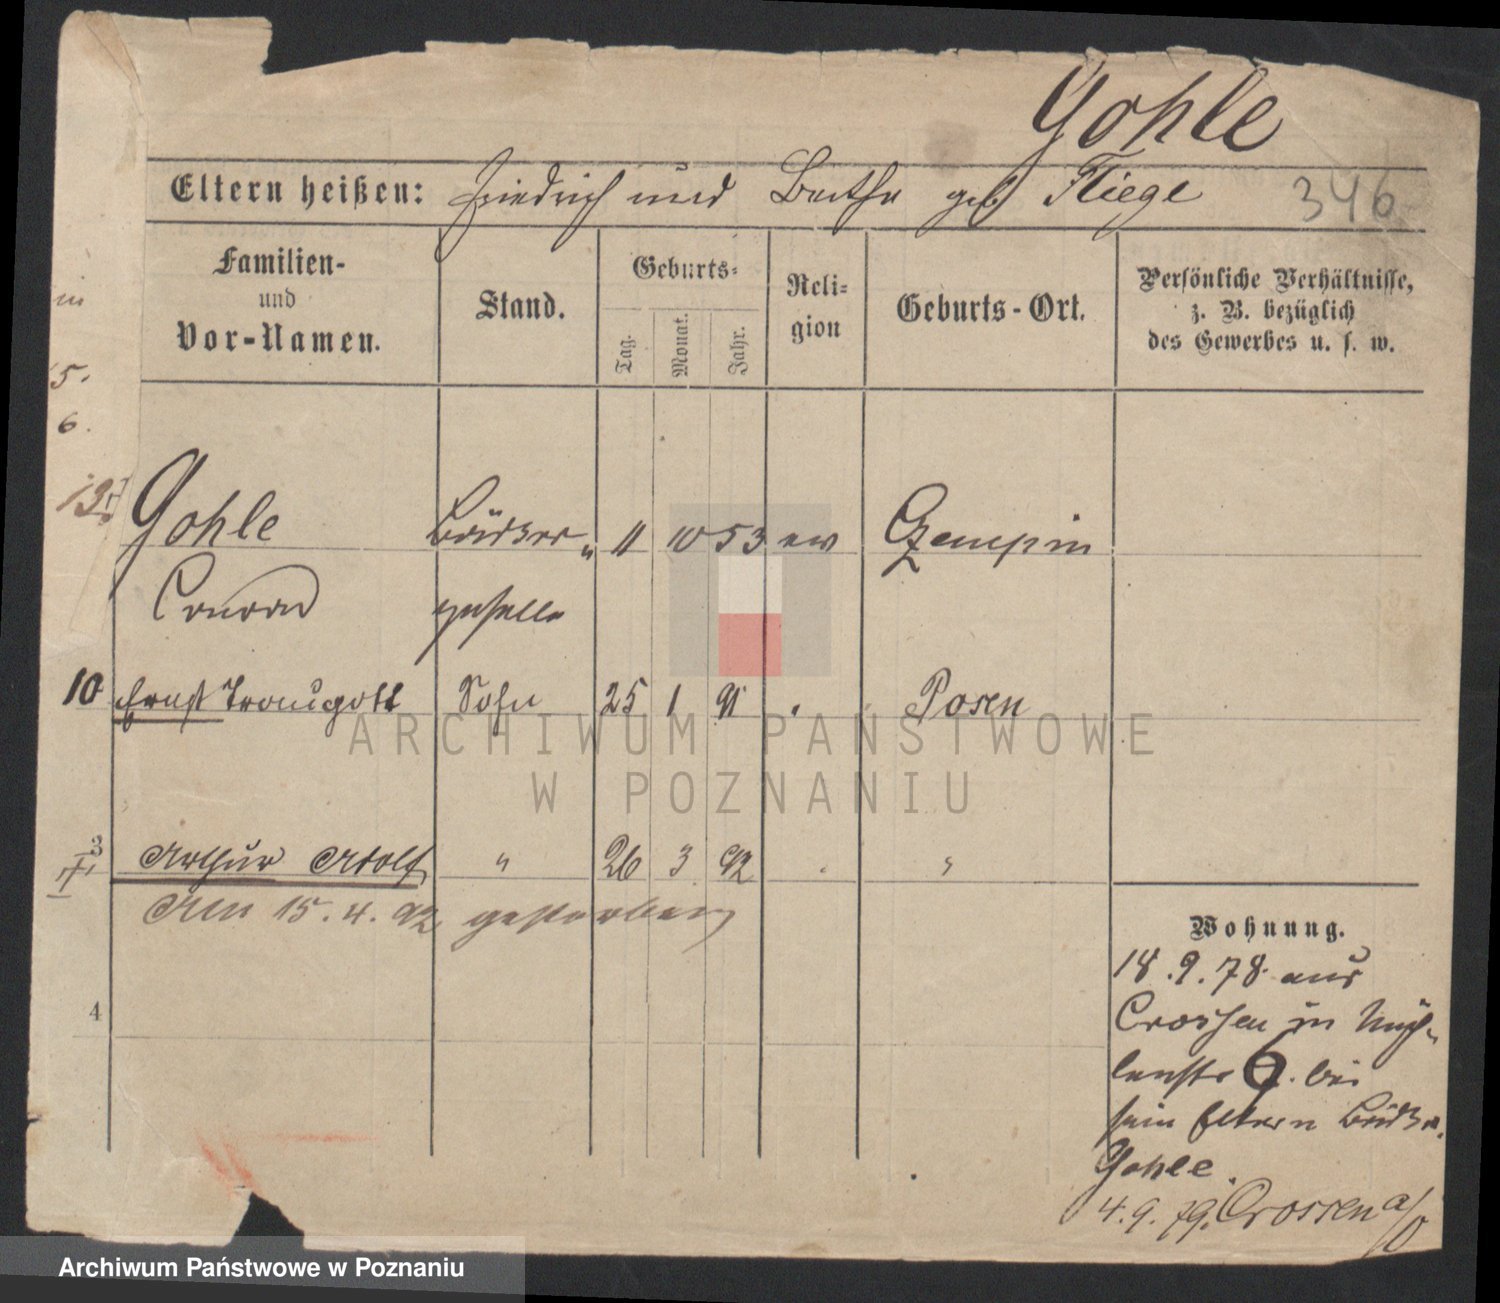 Gohle
Eltern heißen: Friedrich und Bertha geb Fliege 346
Familien-
und
Vor-Namen.
Stand.
Geburts-
Tag.
Monat.
Jahr.
Reli-
gion
Geburts-Ort.
Persönliche Verhältnisse,
z. B. bezüglich
des Gewerbes u. s. w.
in
5.
6.
13
Gohle Böttcher- 11 10 53 ev Czempin
Conrad geselle
10 Ernst Traugott Sohn 25 1 91 " Posen
3 Arthur Adolf " 26 3 92 " "
Am 15. 4. 92 gestorben
4
Wohnung.
18. 9. 78 aus
Crossen in Müh-
lenstr 6. bei
sein Eltern Böttcher
Gohle.
4. 9. 79. Crossen a/O
ARCHIWUM PAŃSTWOWE
W POZNANIU
Archiwum Państwowe w Poznaniu